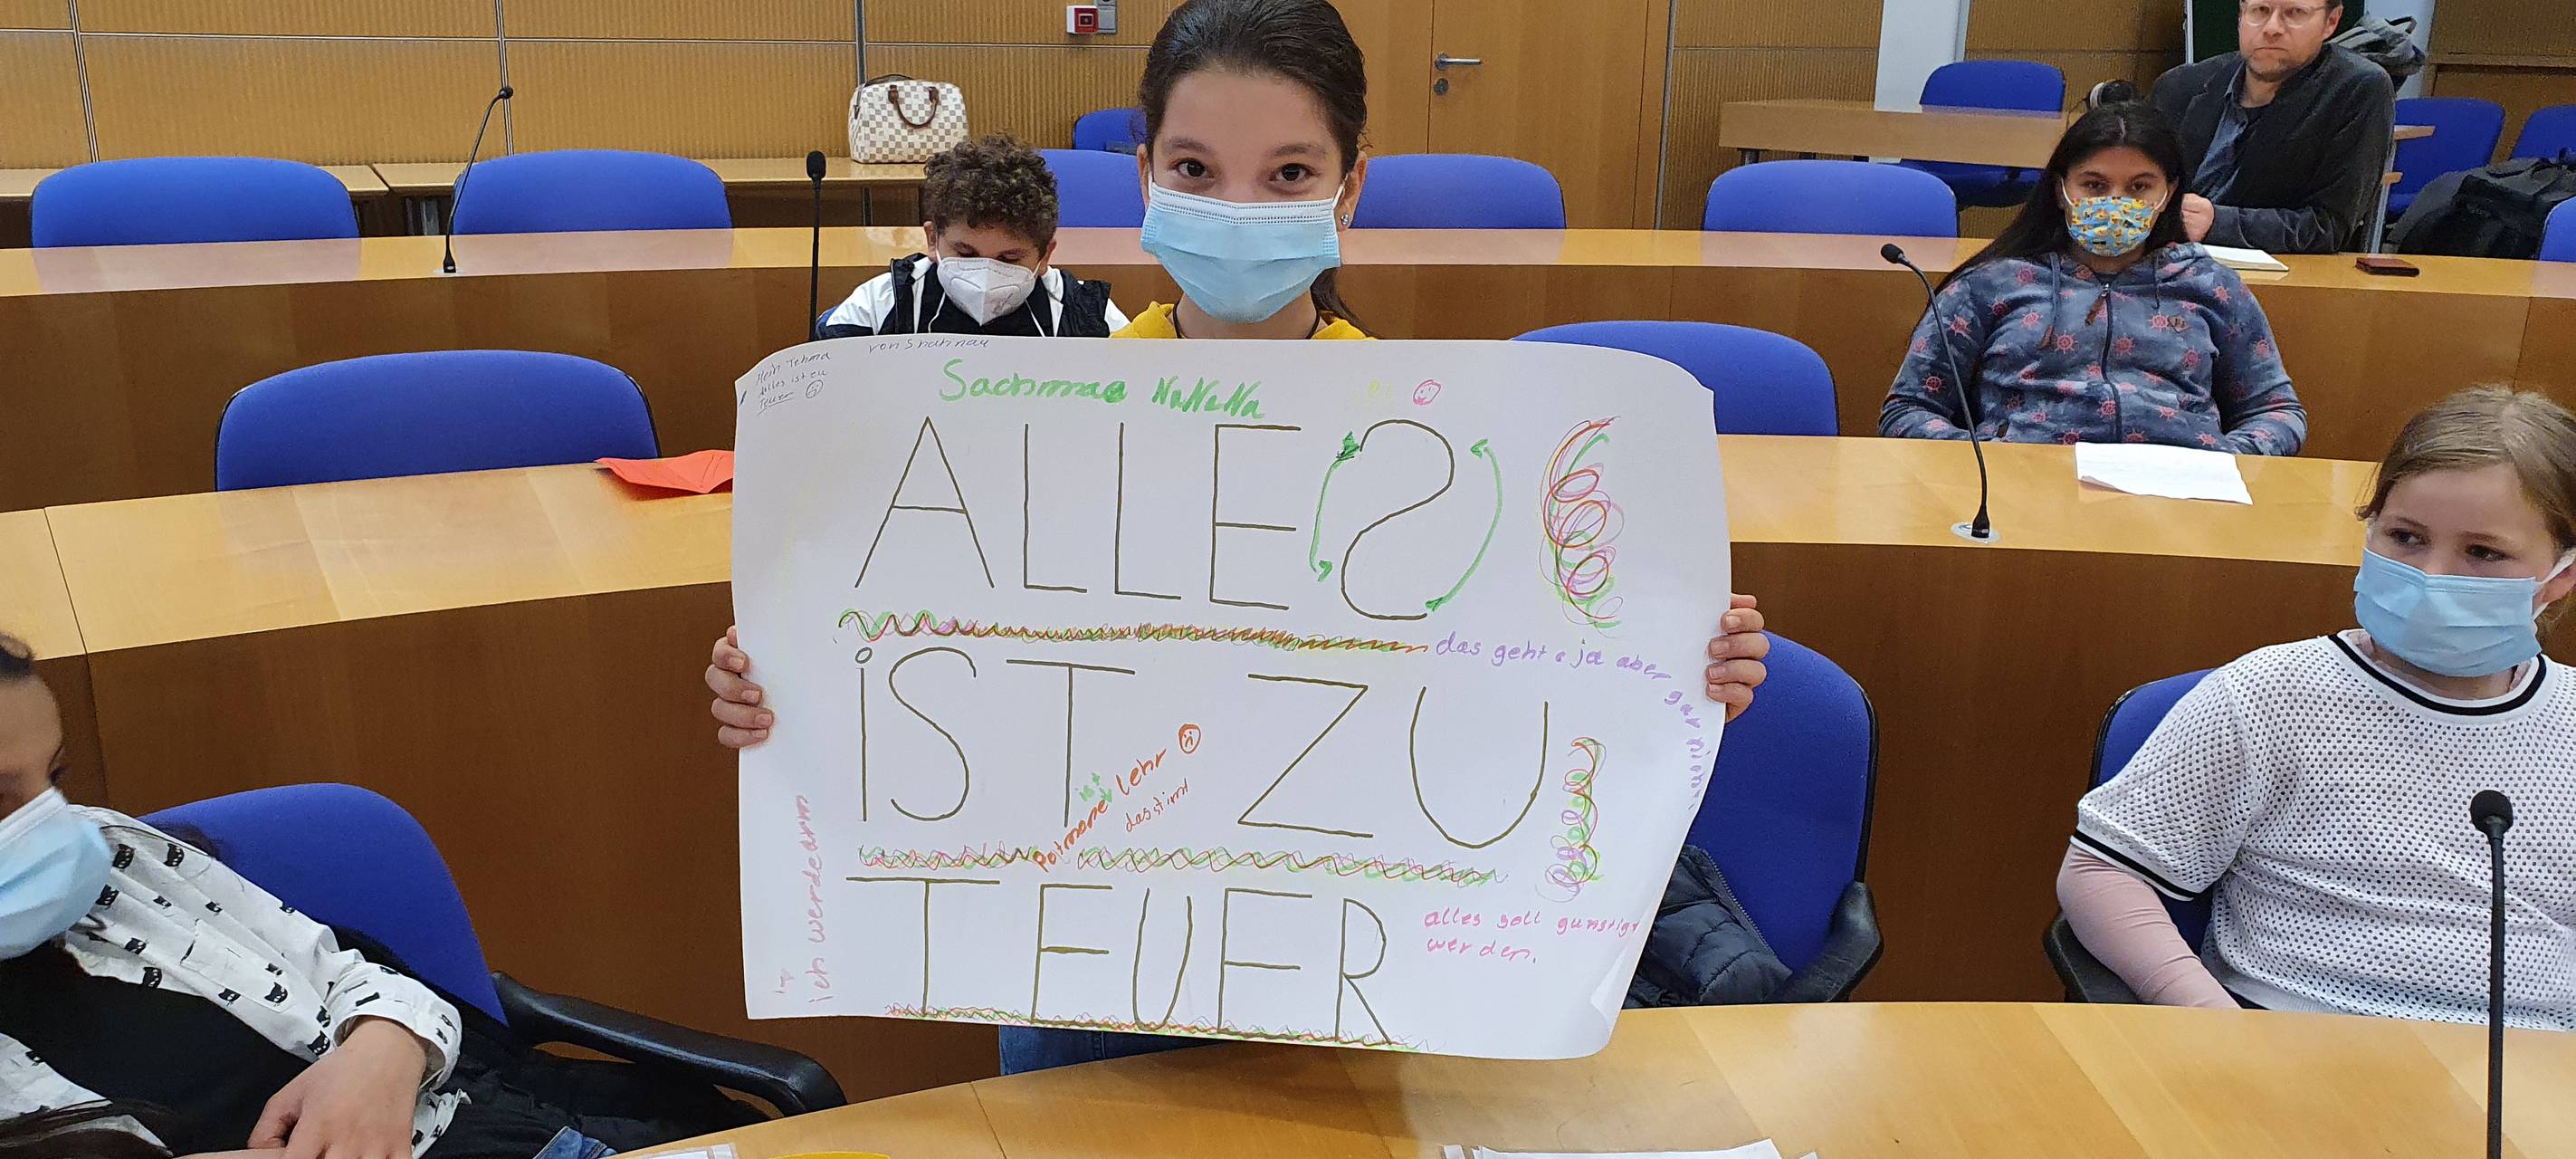 Mein Tehma
Alles ist zu
Teuer
von
Sachmaa NaNaNa
ALLES
das geht a ja aber gar nicht
iST ZU
Potmone ist lehr
das stimt
TEUER
alles soll gunstigr
werden.
ich werde arm